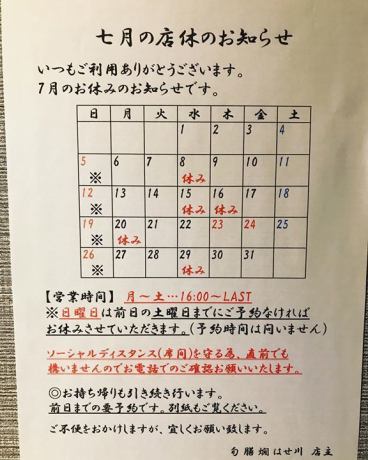 七月の店休のお知らせ
いつもご利用ありがとうございます。
7月のお休みのお知らせです。
日 月 火 水 木 金 土
1 2 3 4
5 6 7 8 9 10 11
※ 休み
12 13 14 15 16 17 18
※ 休み 休み
19 20 21 22 23 24 25
※ 休み
26 27 28 29 30 31
※ 休み
【営業時間】 月～土…16:00～LAST
※日曜日は前日の土曜日までにご予約なければ
お休みさせていただきます。(予約時間は問いません)
ソーシャルディスタンス(席間)を守る為、直前でも
構いませんのでお電話でのご確認お願いいたします。
◎お持ち帰りも引き続き行います。
前日までの要予約です。別紙もご覧ください。
ご不便をおかけしますが、宜しくお願い致します。
旬膳燗 はせ川 店主